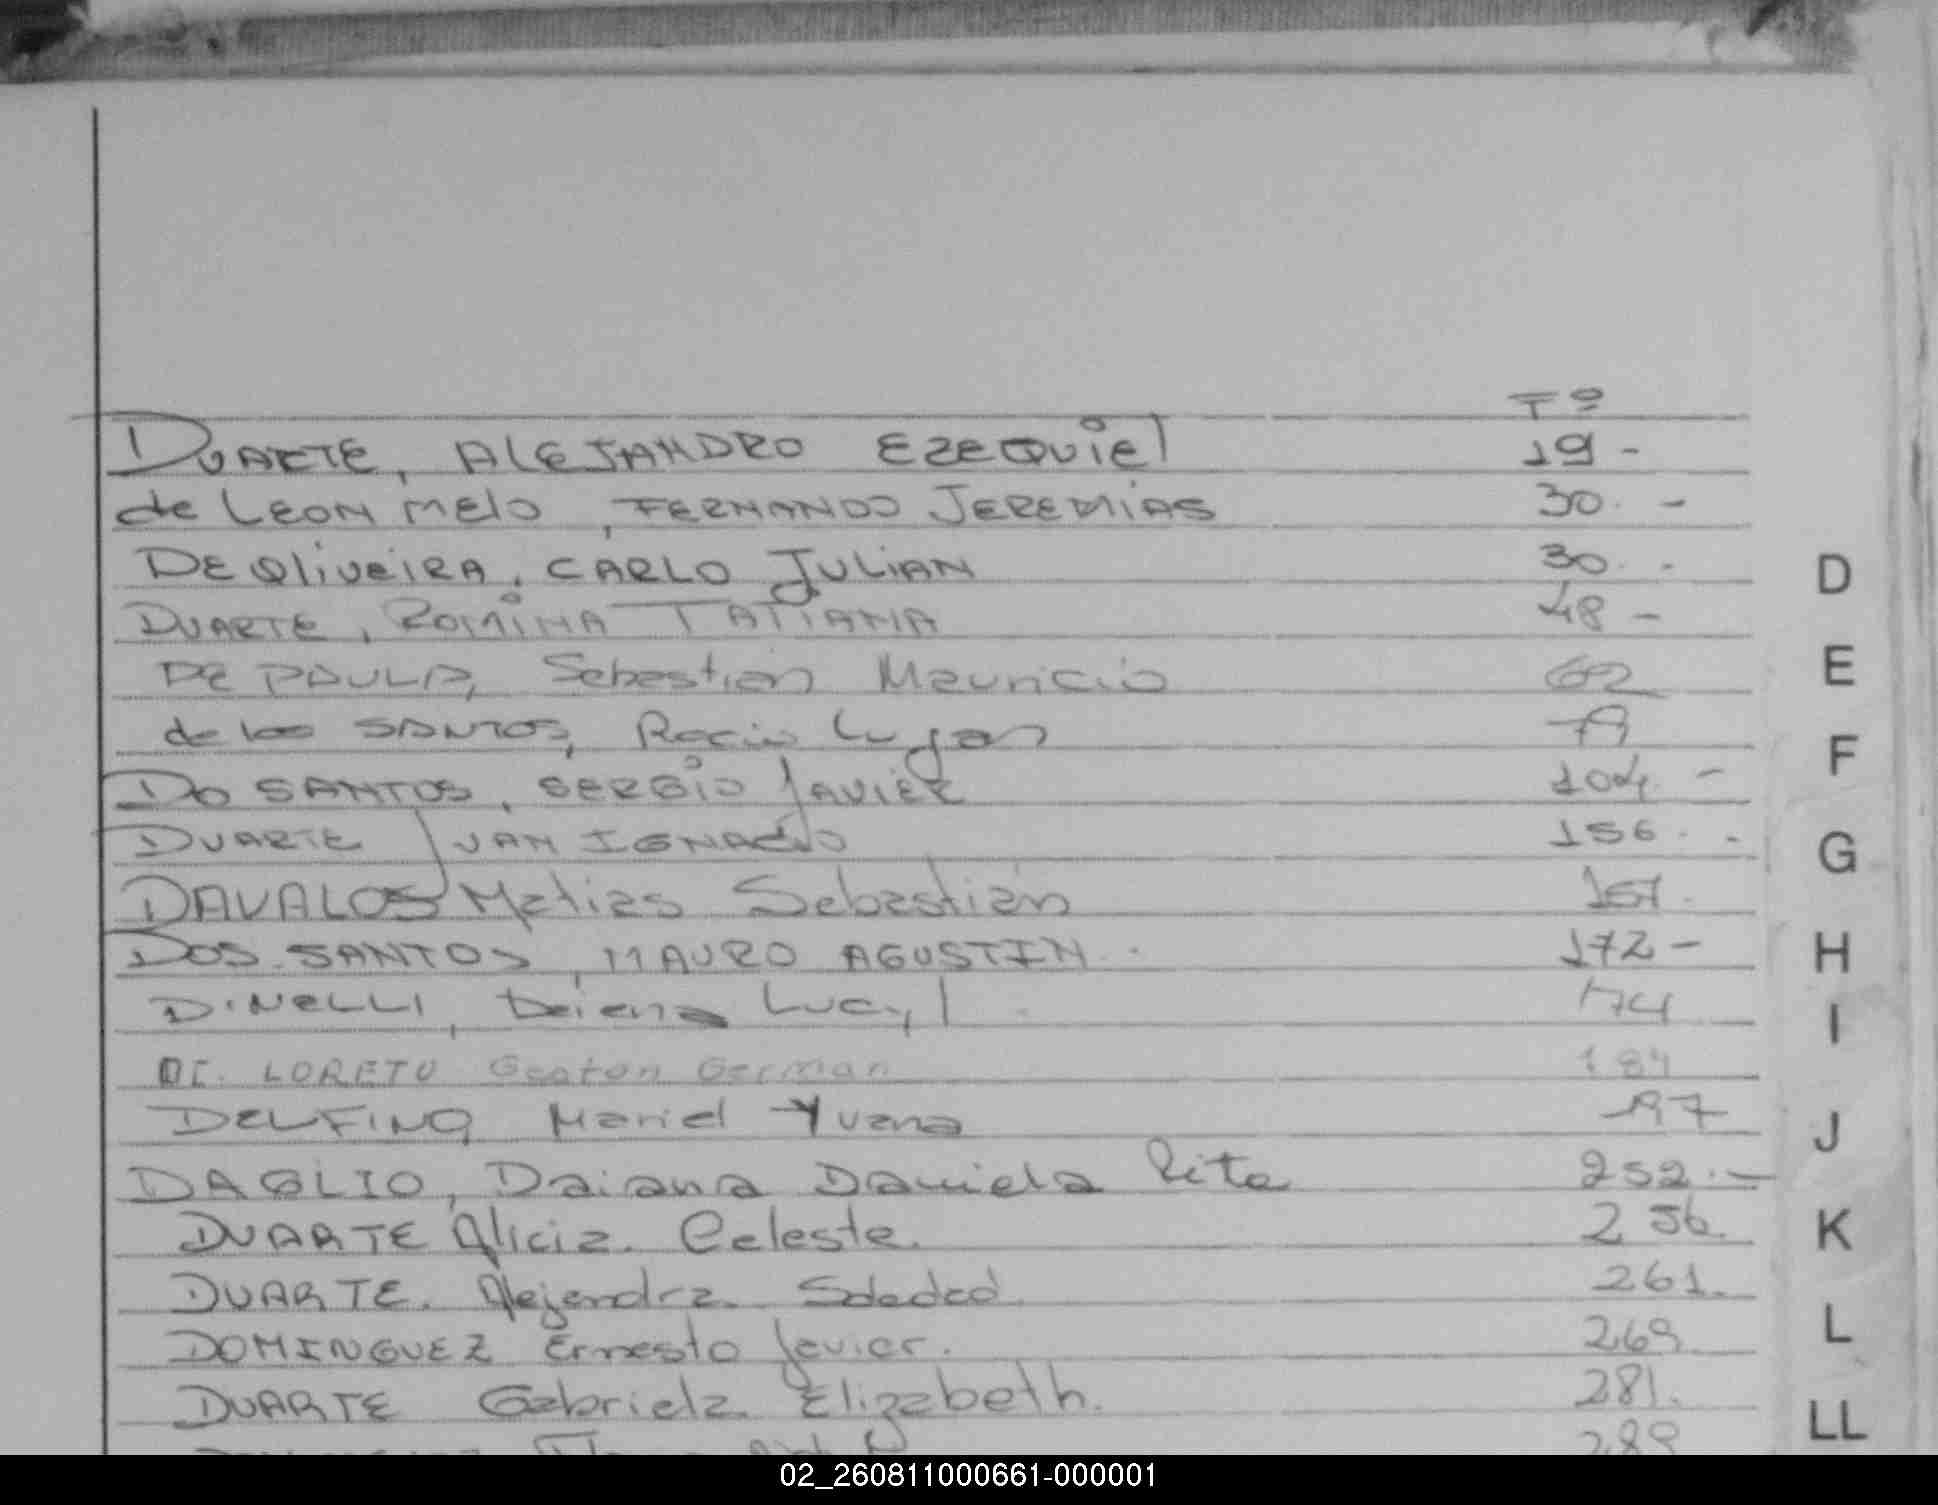 Tº
DUARTE, ALEJANDRO EZEQUIEL 19 -
de LEON MELO, FERNANDO JEREMIAS 30. -
DE OLIVEIRA, CARLO JULIAN 30. -
DUARTE, ROMINA TATIANA 48 -
DE PAULA, Sebastian Mauricio 62
de los SANTOS, Rocio Lujan 79
DO SANTOS, SERGIO JAVIER 104. -
DUARTE JUAN IGNACIO 156. -
DAVALOS Matias Sebastián 167.
DOS. SANTOS, MAURO AGUSTIN. 172 -
DINELLI, Daiana Lucyl 174
DI. LORETO Gaston German 184
DELFINO, Mariel Yvana 197
DAGLIO, Daiana Daniela Rita 252. -
DUARTE Alicia. Celeste. 256.
DUARTE. Alejandra. Soledad. 261.
DOMINGUEZ Ernesto Javier. 269
DUARTE Gabriela. Elizabeth. 281.
289
D
E
F
G
H
I
J
K
L
LL
02_260811000661-000001